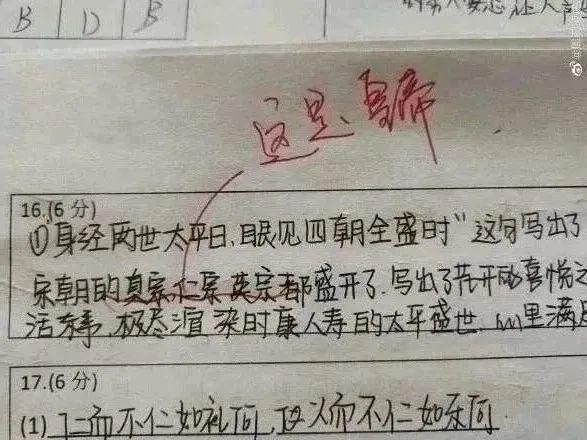 B D B
这是皇帝
16.(6 分)
①"身经两世太平日,眼见四朝全盛时"这句写出了
宋朝的真宗仁宗英宗都盛开了.写出了花开的喜悦之
活,极尽渲染时康人寿的太平盛世.里满
17.(6 分)
(1)仁而不仁如礼何,人而不仁如乐何.